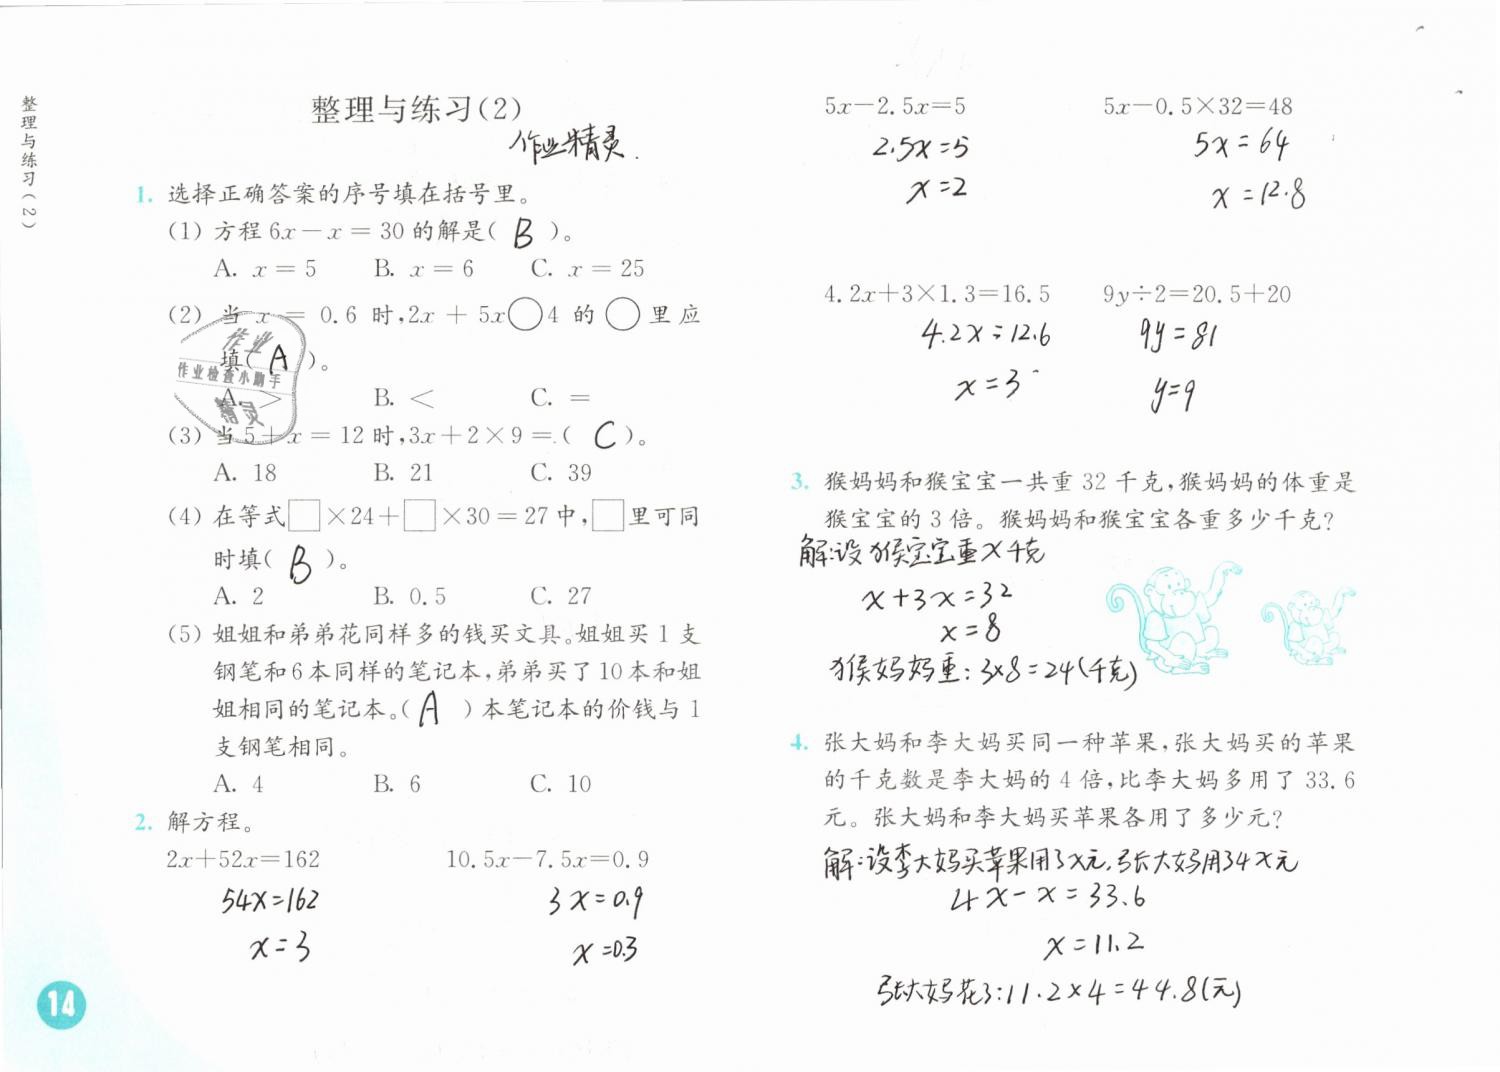 整理与练习(2)
整理与练习(2)
作业精灵.
1. 选择正确答案的序号填在括号里。
(1) 方程 6x－x = 30 的解是( B )。
A. x = 5 B. x = 6 C. x = 25
(2) 当 x = 0.6 时,2x + 5x○4 的 ○ 里应
填( A )。
A. > B. < C. =
(3) 当 5+x = 12 时,3x+2×9 =.( C )。
A. 18 B. 21 C. 39
(4) 在等式□×24+□×30=27 中,□里可同
时填( B )。
A. 2 B. 0.5 C. 27
(5) 姐姐和弟弟花同样多的钱买文具。姐姐买 1 支
钢笔和6本同样的笔记本,弟弟买了10本和姐
姐相同的笔记本。( A )本笔记本的价钱与 1
支钢笔相同。
A. 4 B. 6 C. 10
2. 解方程。
2x+52x=162 10.5x－7.5x=0.9
54x=162 3x=0.9
x=3 x=0.3
作业
作业检查小助手
精灵
14
5x－2.5x=5 5x－0.5×32=48
2.5x=5 5x=64
x=2 x=12.8
4.2x+3×1.3=16.5 9y÷2=20.5+20
4.2x=12.6 9y=81
x=3 y=9
3. 猴妈妈和猴宝宝一共重 32 千克,猴妈妈的体重是
猴宝宝的 3 倍。猴妈妈和猴宝宝各重多少千克?
解:设猴宝宝重x千克
x+3x=32
x=8
猴妈妈重:3×8=24(千克)
4. 张大妈和李大妈买同一种苹果,张大妈买的苹果
的千克数是李大妈的 4 倍,比李大妈多用了 33.6
元。张大妈和李大妈买苹果各用了多少元?
解:设李大妈买苹果用了x元,张大妈用了4x元
4x－x=33.6
x=11.2
张大妈花了:11.2×4=44.8(元)